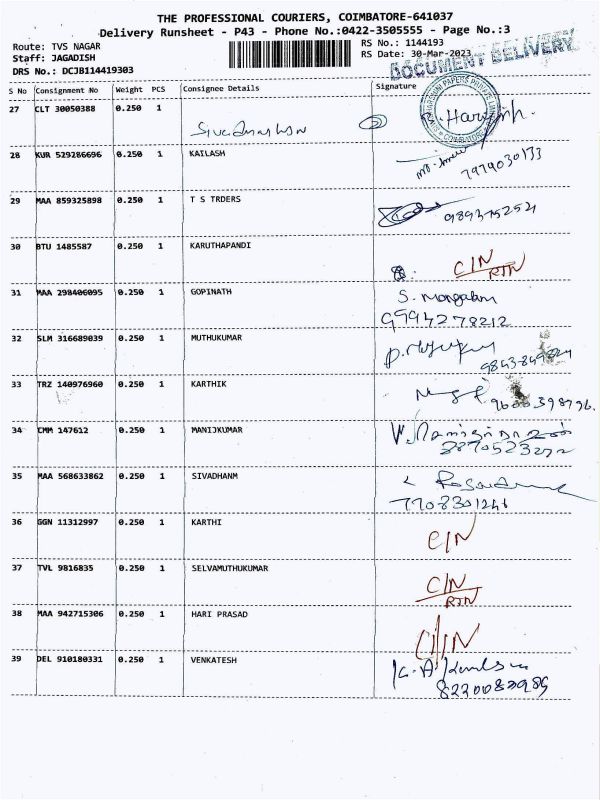 THE PROFESSIONAL COURIERS, COIMBATORE-641037
Delivery Runsheet - P43 - Phone No.:0422-3505555 - Page No.:3
Route: TVS NAGAR
Staff: JAGADISH
DRS No.: DCJB114419303
RS No.: 1144193
RS Date: 30-Mar-2023
DOCUMENT DELIVERY
S No Consignment No Weight PCS Consignee Details Signature
27 CLT 30050388 0.250 1
28 KUR 529286696 0.250 1 KAILASH
7979030133
29 MAA 859325898 0.250 1 T S TRDERS
9893752521
30 BTU 1485587 0.250 1 KARUTHAPANDI
C/N
RTN
31 MAA 298406095 0.250 1 GOPINATH
S. Mangalam
9994278212
32 SLM 316689039 0.250 1 MUTHUKUMAR
33 TRZ 140976960 0.250 1 KARTHIK
9600398796.
34 CMM 147612 0.250 1 MANIJKUMAR
35 MAA 568633862 0.250 1 SIVADHANM
7708301246
36 GGN 11312997 0.250 1 KARTHI
C/N
37 TVL 9816835 0.250 1 SELVAMUTHUKUMAR
C/N
RTN
38 MAA 942715306 0.250 1 HARI PRASAD
C/N
39 DEL 910180331 0.250 1 VENKATESH